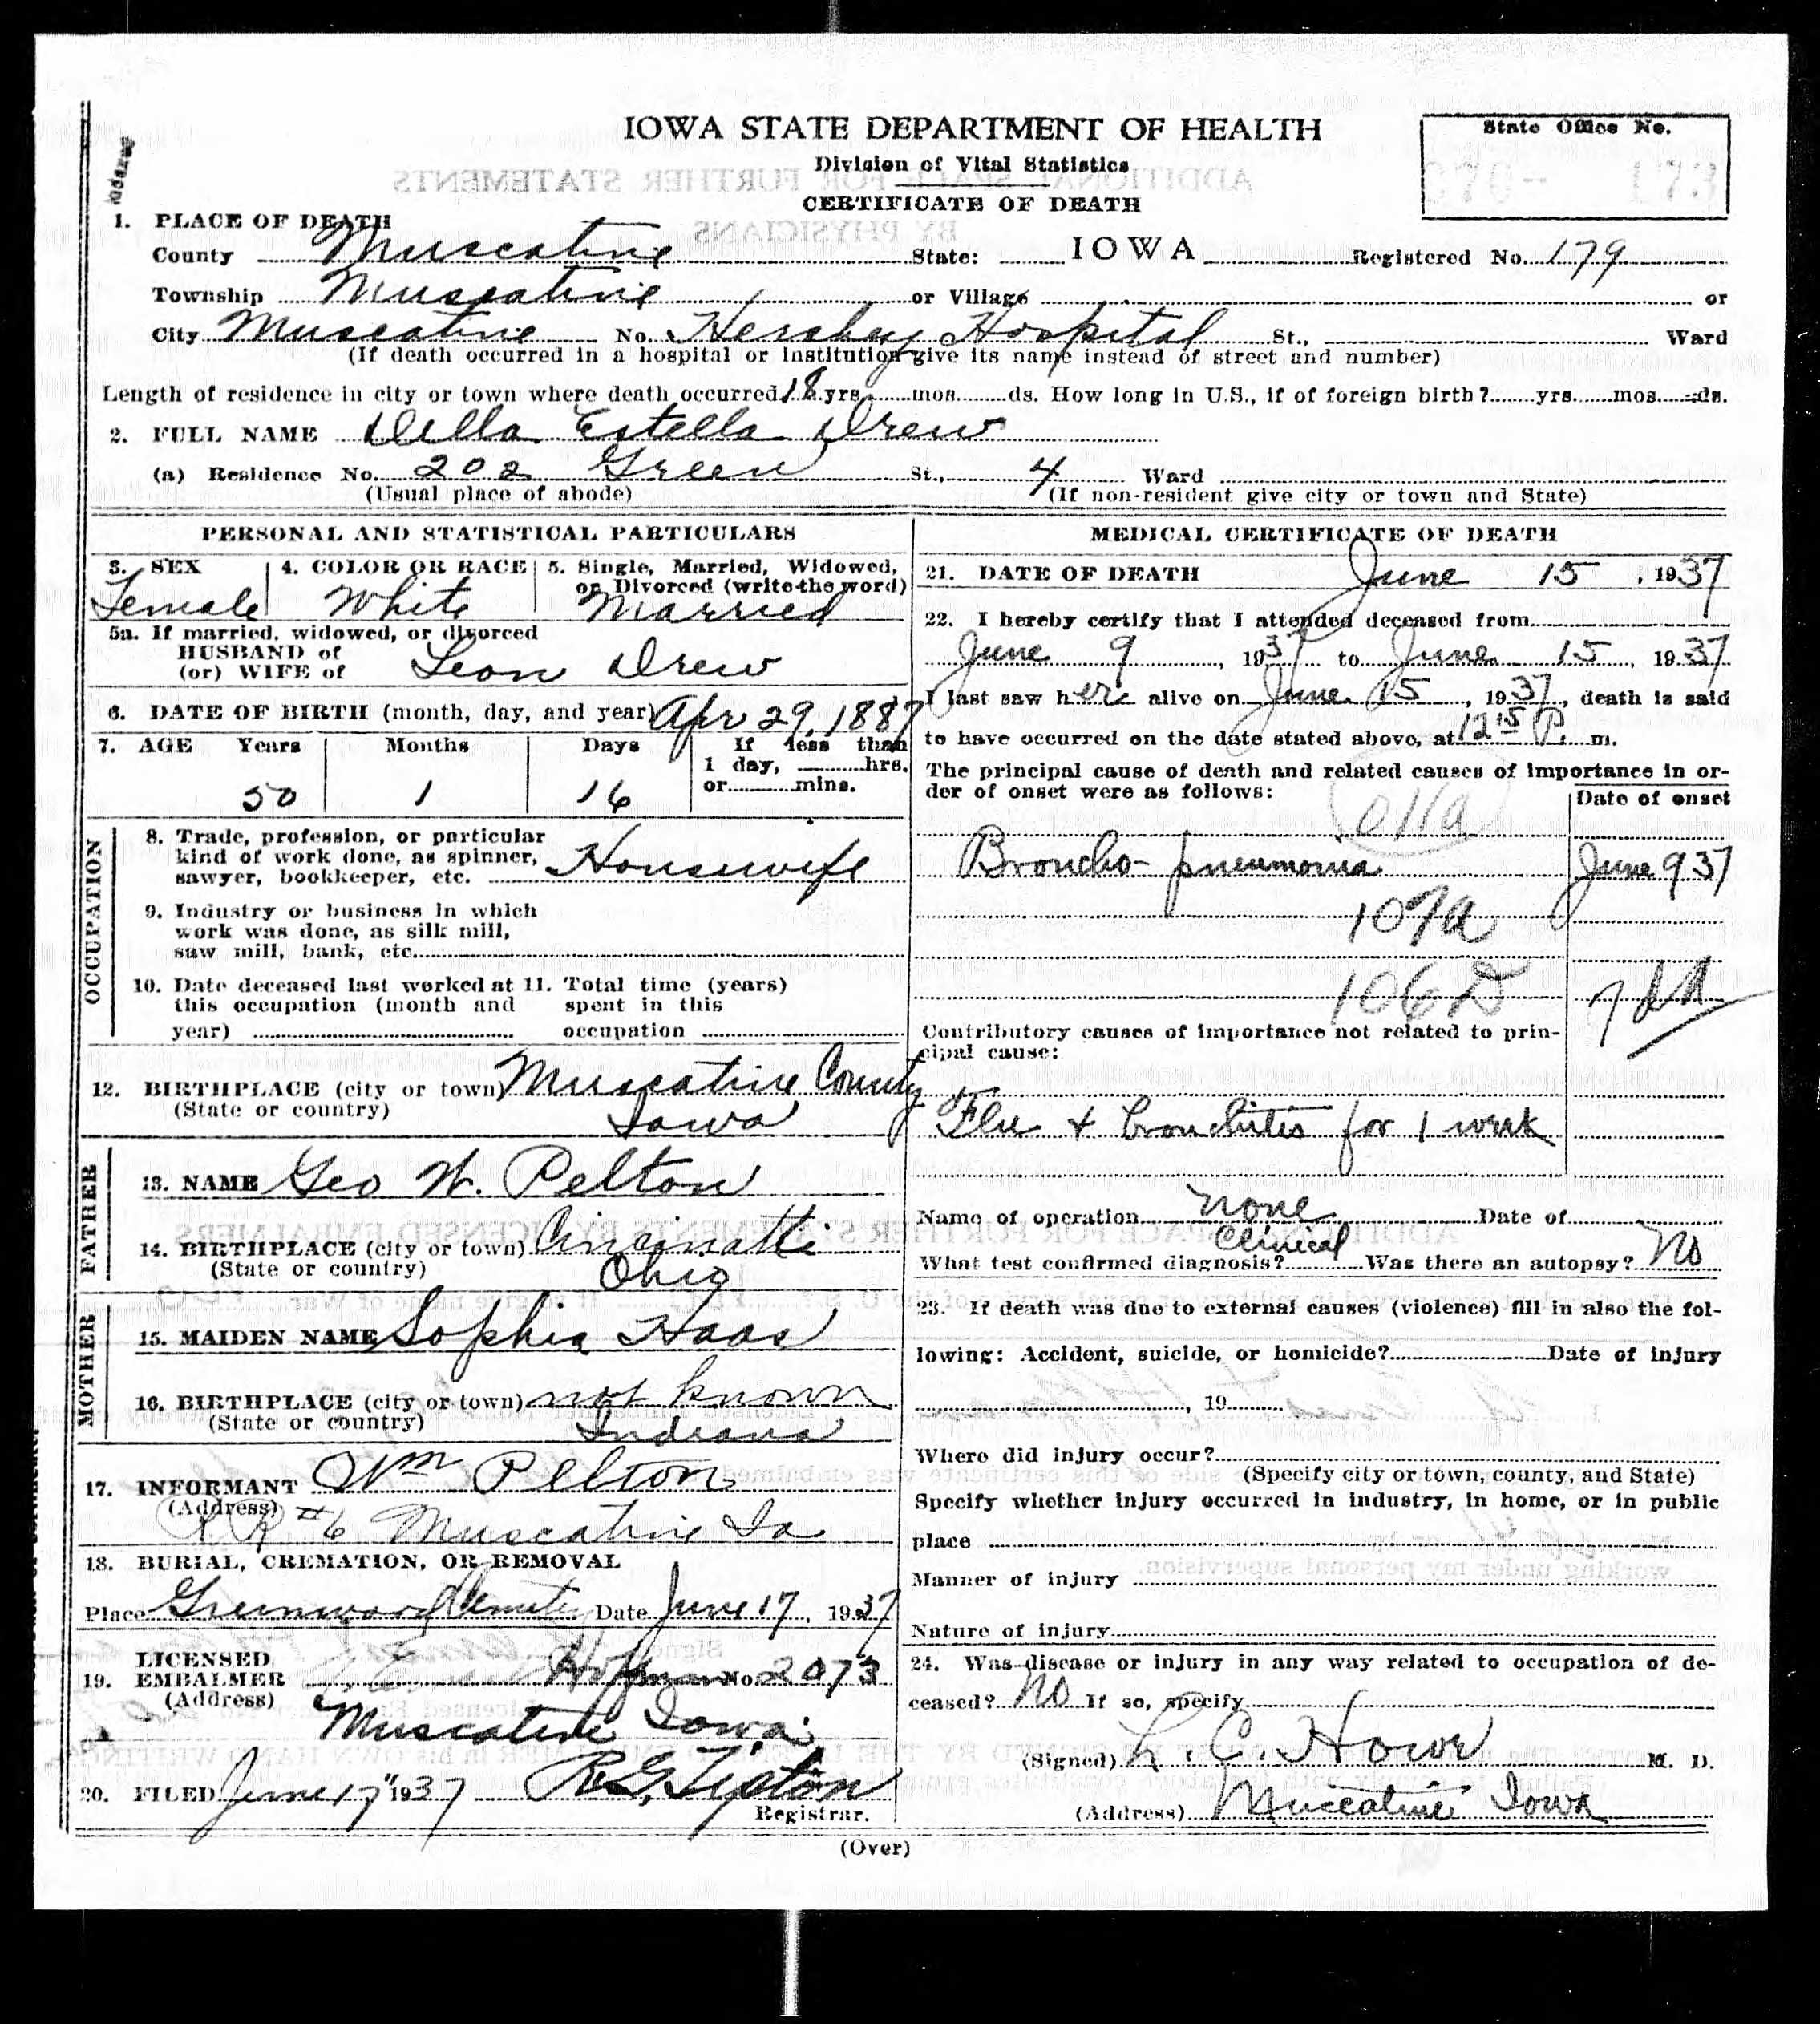 IOWA STATE DEPARTMENT OF HEALTH
State Office No.
Division of Vital Statistics
CERTIFICATE OF DEATH
1. PLACE OF DEATH
County Muscatine State: IOWA Registered No. 179
Township Muscatine or Village or
City Muscatine No. Hershey Hospital St., Ward
(If death occurred in a hospital or institution give its name instead of street and number)
Length of residence in city or town where death occurred 18 yrs. mos. ds. How long in U.S., if of foreign birth? yrs. mos. ds.
2. FULL NAME Della Estella Drew
(a) Residence No. 202 Green St., 4 Ward
(Usual place of abode) (If non-resident give city or town and State)
PERSONAL AND STATISTICAL PARTICULARS
3. SEX 4. COLOR OR RACE 5. Single, Married, Widowed,
or Divorced (write the word)
Female White Married
5a. If married, widowed, or divorced
HUSBAND of
(or) WIFE of Leon Drew
6. DATE OF BIRTH (month, day, and year) Apr 29, 1887
7. AGE Years Months Days If less than
1 day, hrs.
or mins.
50 1 16
OCCUPATION
8. Trade, profession, or particular
kind of work done, as spinner,
sawyer, bookkeeper, etc. Housewife
9. Industry or business in which
work was done, as silk mill,
saw mill, bank, etc.
10. Date deceased last worked at 11. Total time (years)
this occupation (month and spent in this
year) occupation
12. BIRTHPLACE (city or town) Muscatine County
(State or country) Iowa
FATHER
13. NAME Geo W. Pelton
14. BIRTHPLACE (city or town) Cincinatti
(State or country) Ohio
MOTHER
15. MAIDEN NAME Sophia Haas
16. BIRTHPLACE (city or town) not known
(State or country) Indiana
17. INFORMANT Wm Pelton
(Address) R R #6 Muscatine Ia
18. BURIAL, CREMATION, OR REMOVAL
Place Greenwood Date June 17, 1937
LICENSED
19. EMBALMER Hoffman No. 2073
(Address)
Muscatine Iowa
20. FILED June 17 1937 R G Tipton
Registrar.
MEDICAL CERTIFICATE OF DEATH
21. DATE OF DEATH June 15, 1937
22. I hereby certify that I attended deceased from
June 9, 1937 to June 15, 1937
I last saw her alive on June 15, 1937, death is said
to have occurred on the date stated above, at 12 15 P. m.
The principal cause of death and related causes of importance in or-
der of onset were as follows:
Date of onset
011a
Broncho-pneumonia June 9 37
107a
106D
Contributory causes of importance not related to prin-
cipal cause:
Flu + bronchitis for 1 week
Name of operation none Date of
What test confirmed diagnosis? Clinical Was there an autopsy? No
23. If death was due to external causes (violence) fill in also the fol-
lowing: Accident, suicide, or homicide? Date of injury
, 19
Where did injury occur?
(Specify city or town, county, and State)
Specify whether injury occurred in industry, in home, or in public
place
Manner of injury
Nature of injury
24. Was disease or injury in any way related to occupation of de-
ceased? No If so, specify
(Signed) L. C. Howe M. D.
(Address) Muscatine Iowa
(Over)